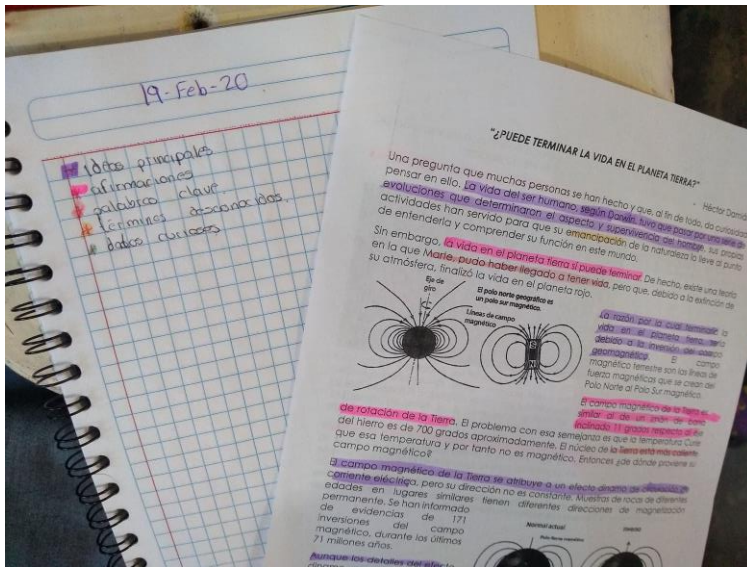 19-Feb-20
ideas principales
afirmaciones
palabras clave.
términos desconocidos.
datos curiosos
"¿PUEDE TERMINAR LA VIDA EN EL PLANETA TIERRA?"
- Héctor
Una pregunta que muchas personas se han hecho y que, al fin de todo, da curiosidad
pensar en ello. La vida del ser humano, según Darwin, tuvo que pasar por una serie de
evoluciones que determinaron el aspecto y supervivencia del hombre, sus propias
actividades han servido para que su emancipación de la naturaleza lo lleve al punto
de enfenderla y comprender su función en este mundo.
Sin embargo, la vida en el planeta tierra si puede terminar. De hecho, existe una teoría
en la que Marte, pudo haber llegado a tener vida, pero que, debido a la extinción de
su atmósfera, finalizó la vida en el planeta rojo.
Eje de
giro
Líneas de campo
magnético
El polo norte geográfico es
un polo sur magnético.
S
N
La razón por la cual terminaría la
vida en el planeta tierra, sería
debido a la inversión del campo
geomagnético. El campo
magnético terrestre son las líneas de
fuerza magnéticas que se crean del
Polo Norte al Polo Sur magnético.
El campo magnético de la Tierra es
similar al de un imán de barra
inclinado 11 grados respecto al eje
de rotación de la Tierra. El problema con esa semejanza es que la temperatura Curie
del hierro es de 700 grados aproximadamente. El núcleo de la Tierra está más caliente
que esa temperatura y por tanto no es magnético. Entonces ¿de dónde proviene su
campo magnético?
El campo magnético de la Tierra se atribuye a un efecto dinamo de
corriente eléctrica, pero su dirección no es constante. Muestras de rocas de diferentes
edades en lugares similares tienen diferentes direcciones de magnetización
permanente. Se han informado
de evidencias de 171
inversiones del campo
magnético, durante los últimos
71 millones años.
Normal actual
Polo Norte
Aunque los detalles del efecto